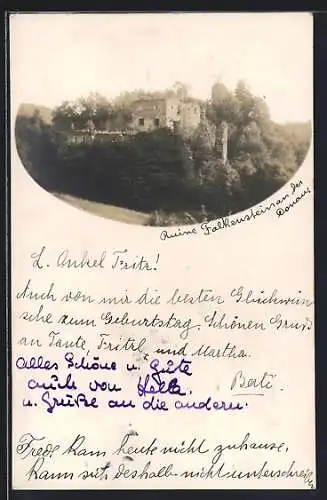 Ruine Falkenstein an der
Donau
L. Onkel Fritz!
Auch von mir die besten Glückwün-
sche zum Geburtstag. Schönen Gruß
an Tante, Fritzl, und Martha.
Berti.
Alles Schöne u. Gute
auch von Hella
u. Grüße an die andern.
Fredl kam heute nicht zuhause,
kann sich deshalb nicht unterschreib.